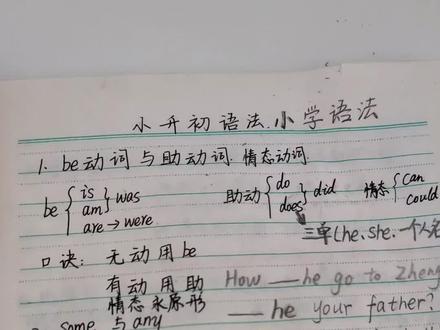 小升初语法.小学语法
1. be动词与助动词.情态动词.
be { is am } was are → were 助动 { do does } did 情态 { can could
三单(he、she、一个人名
口诀: 无动用be
有动用助 How __ he go to Zheng
情态永原形 __ he your father?
some 与 any